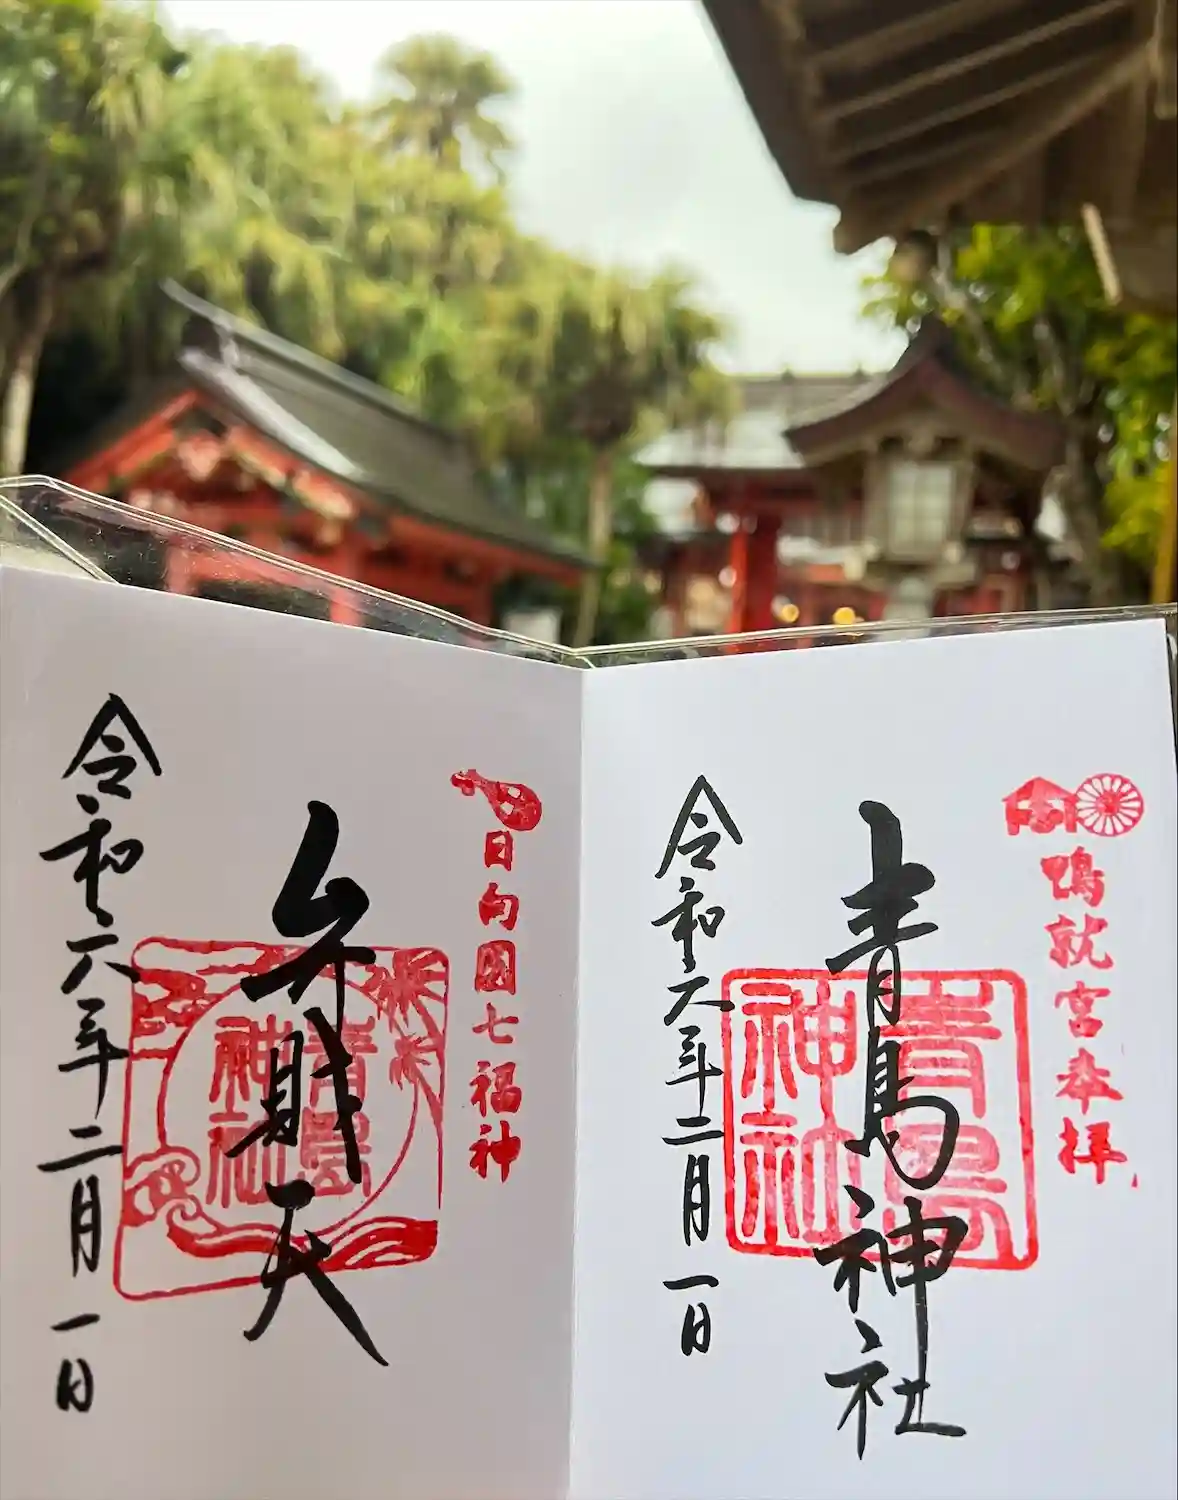 鴨就宮奉拝
青島神社
青島神社
令和六年二月一日
日向國七福神
弁財天
青島神社
令和六年二月一日